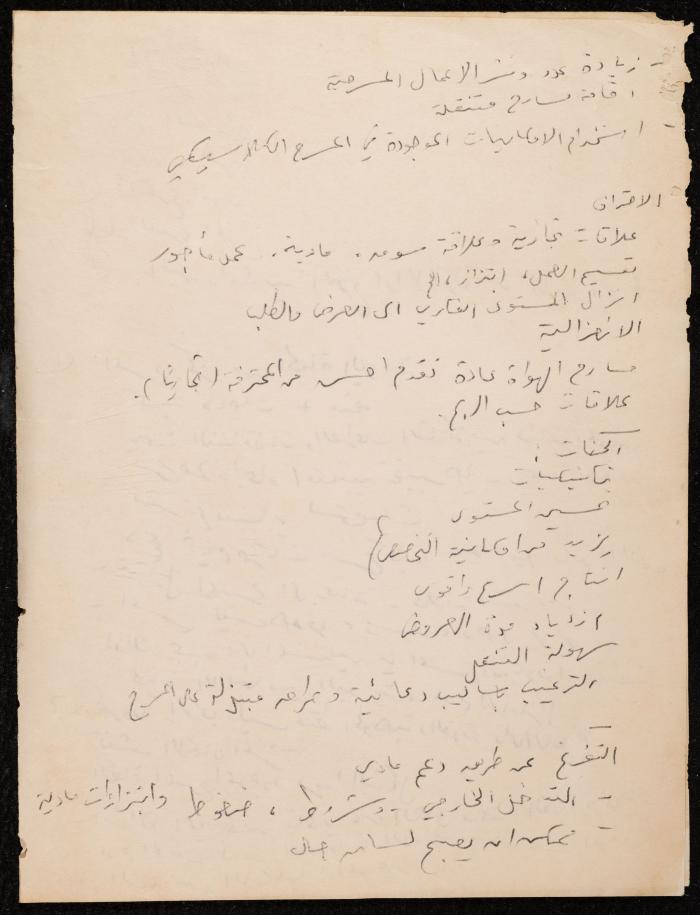 - زيادة عدد ونشر الاعمال المسرحية
اقامة مسارح متنقلة
- استخدام الامكانيات الموجودة في المسرح الكلاسيكي
الاحتراف
علاقات تجارية وعلاقة سوء، مادية. عمل مأجور
تقسيم العمل، ابتزاز، الخ
انزال المستوى الفكري الى العرض والطلب
الانهزالية
مسارح الهواة عادة تقدم احسن من المحترفة (تجاريا).
علاقات حسب الربح.
الحسنات:
تحسين المستوى
يزيد من امكانية التخصص
انتاج اسرع واقوى
ازدياد قوة العروض
سهولة التنقل
الترغيب باساليب دعائية و مبتذلة على المسرح
التفرغ عن طريق دعم مادي
- التدخل الخارجي - شروط، ضغوط وابتزازات مادية
- ممكن ان يصبح لسان حال